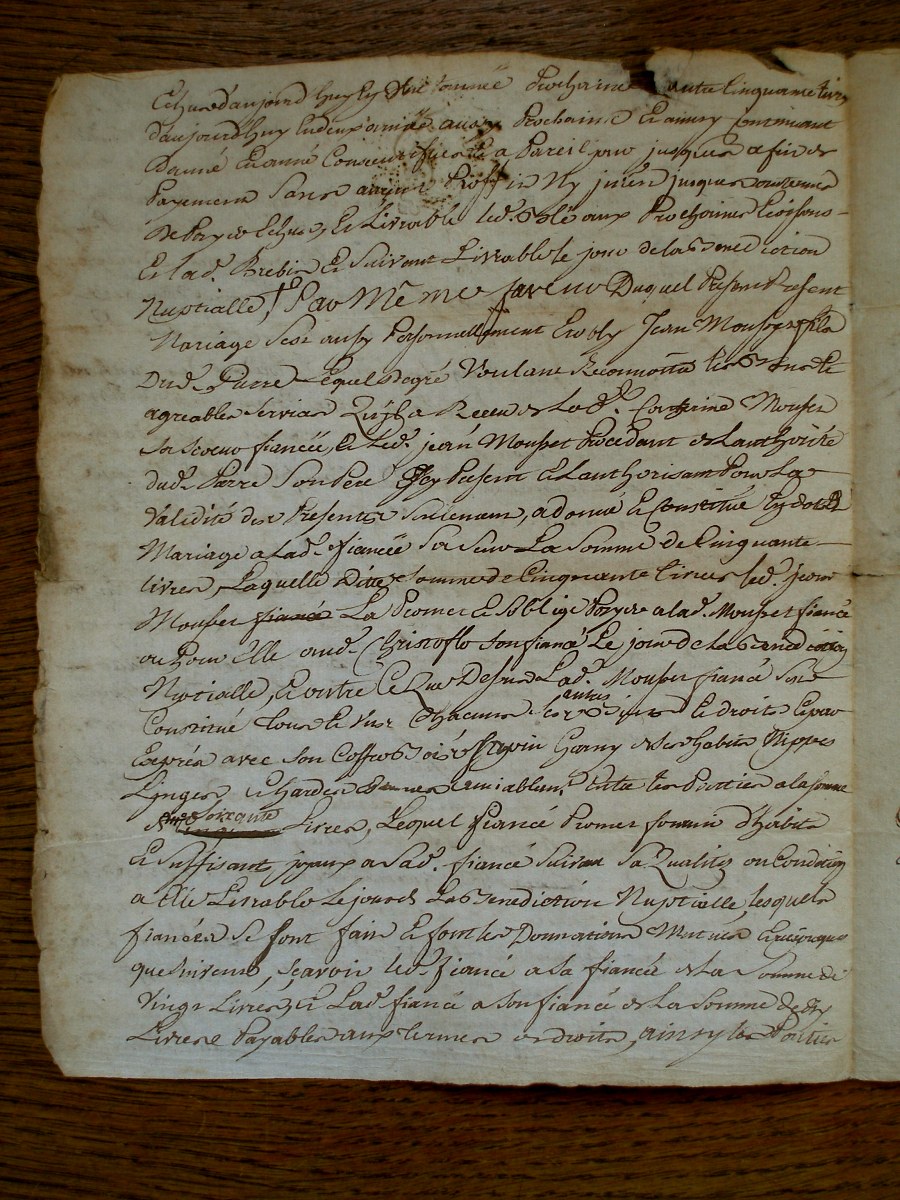 d'aujourd'huy en une année Prochaine autre Cinquante livres
d'aujourdhuy en deux année aussy Prochaine Et ainsy continuant
d'anné En anné Consecutifvement a Pareil jour jusques a fin de
Payement Sans aucun Proffit Ny jusques
De Payes Echus, Et Livrable led. Blé aux Prochaines
Et lad. Brebis Et Suivant Livrable le jour de la Benediction
Nuptialle, Par Même faveur Duquel Present Present
Mariage S'est aussy Personnellement Etobly Jean Mousset fils
Dud. Pierre Lequel de gré Voulant Reconnoittre les Bons Et
agreables Services Quil a Receu de lad. Catherine Mousset
Sa Soeur fiancée, Et led. jean Mousset Procédant de Lauthorité
dud. Pierre Son Pere Icy Present Et Lauthorisant Pour La
Validité des Presentes Seulement, a donné Et Constitué En dot Et
Mariage a Lad. fiancée Sa Seur La Somme de Cinquante
livres, Laquelle ditte Somme de Cinquante livres led. jean
Mousset fiancé La Promet Et Soblige Payer a lad. Mousset fiancé
ou Pour Elle aud. Christoflo Son fiancé Le jour de la Benediction
Nuptialle, Et outre Ce Que Dessus Lad. Mousset fiancé S'est
Constitué Tous Et Uns Chacuns Ses autres Biens Et droits Et par
Exprés avec Son Coffre Bois Sapin Garny de Ses habits Nippes
Linges Et hardes amiablement Entre les Parties a la Somme
de Soixante Livres, Lequel fiancé Promet fournir d'habits
Et Suffisant joyaux a Sad. fiancé Suivant Sa Qualité ou Condition
a Elle Livrable Le jour de La Benediction Nuptialle, lesquels
fiancés Se font faire Et font les Donnations Mutuées Et reciproques
que Suivent, Sçavoir led. fiancé a Sa fiancée de La Somme de
Vingt Livres Et Lad. fiancé a Son fiancé de La Somme de dix
Livres Payables aux termes de droits, ainsy les Parties